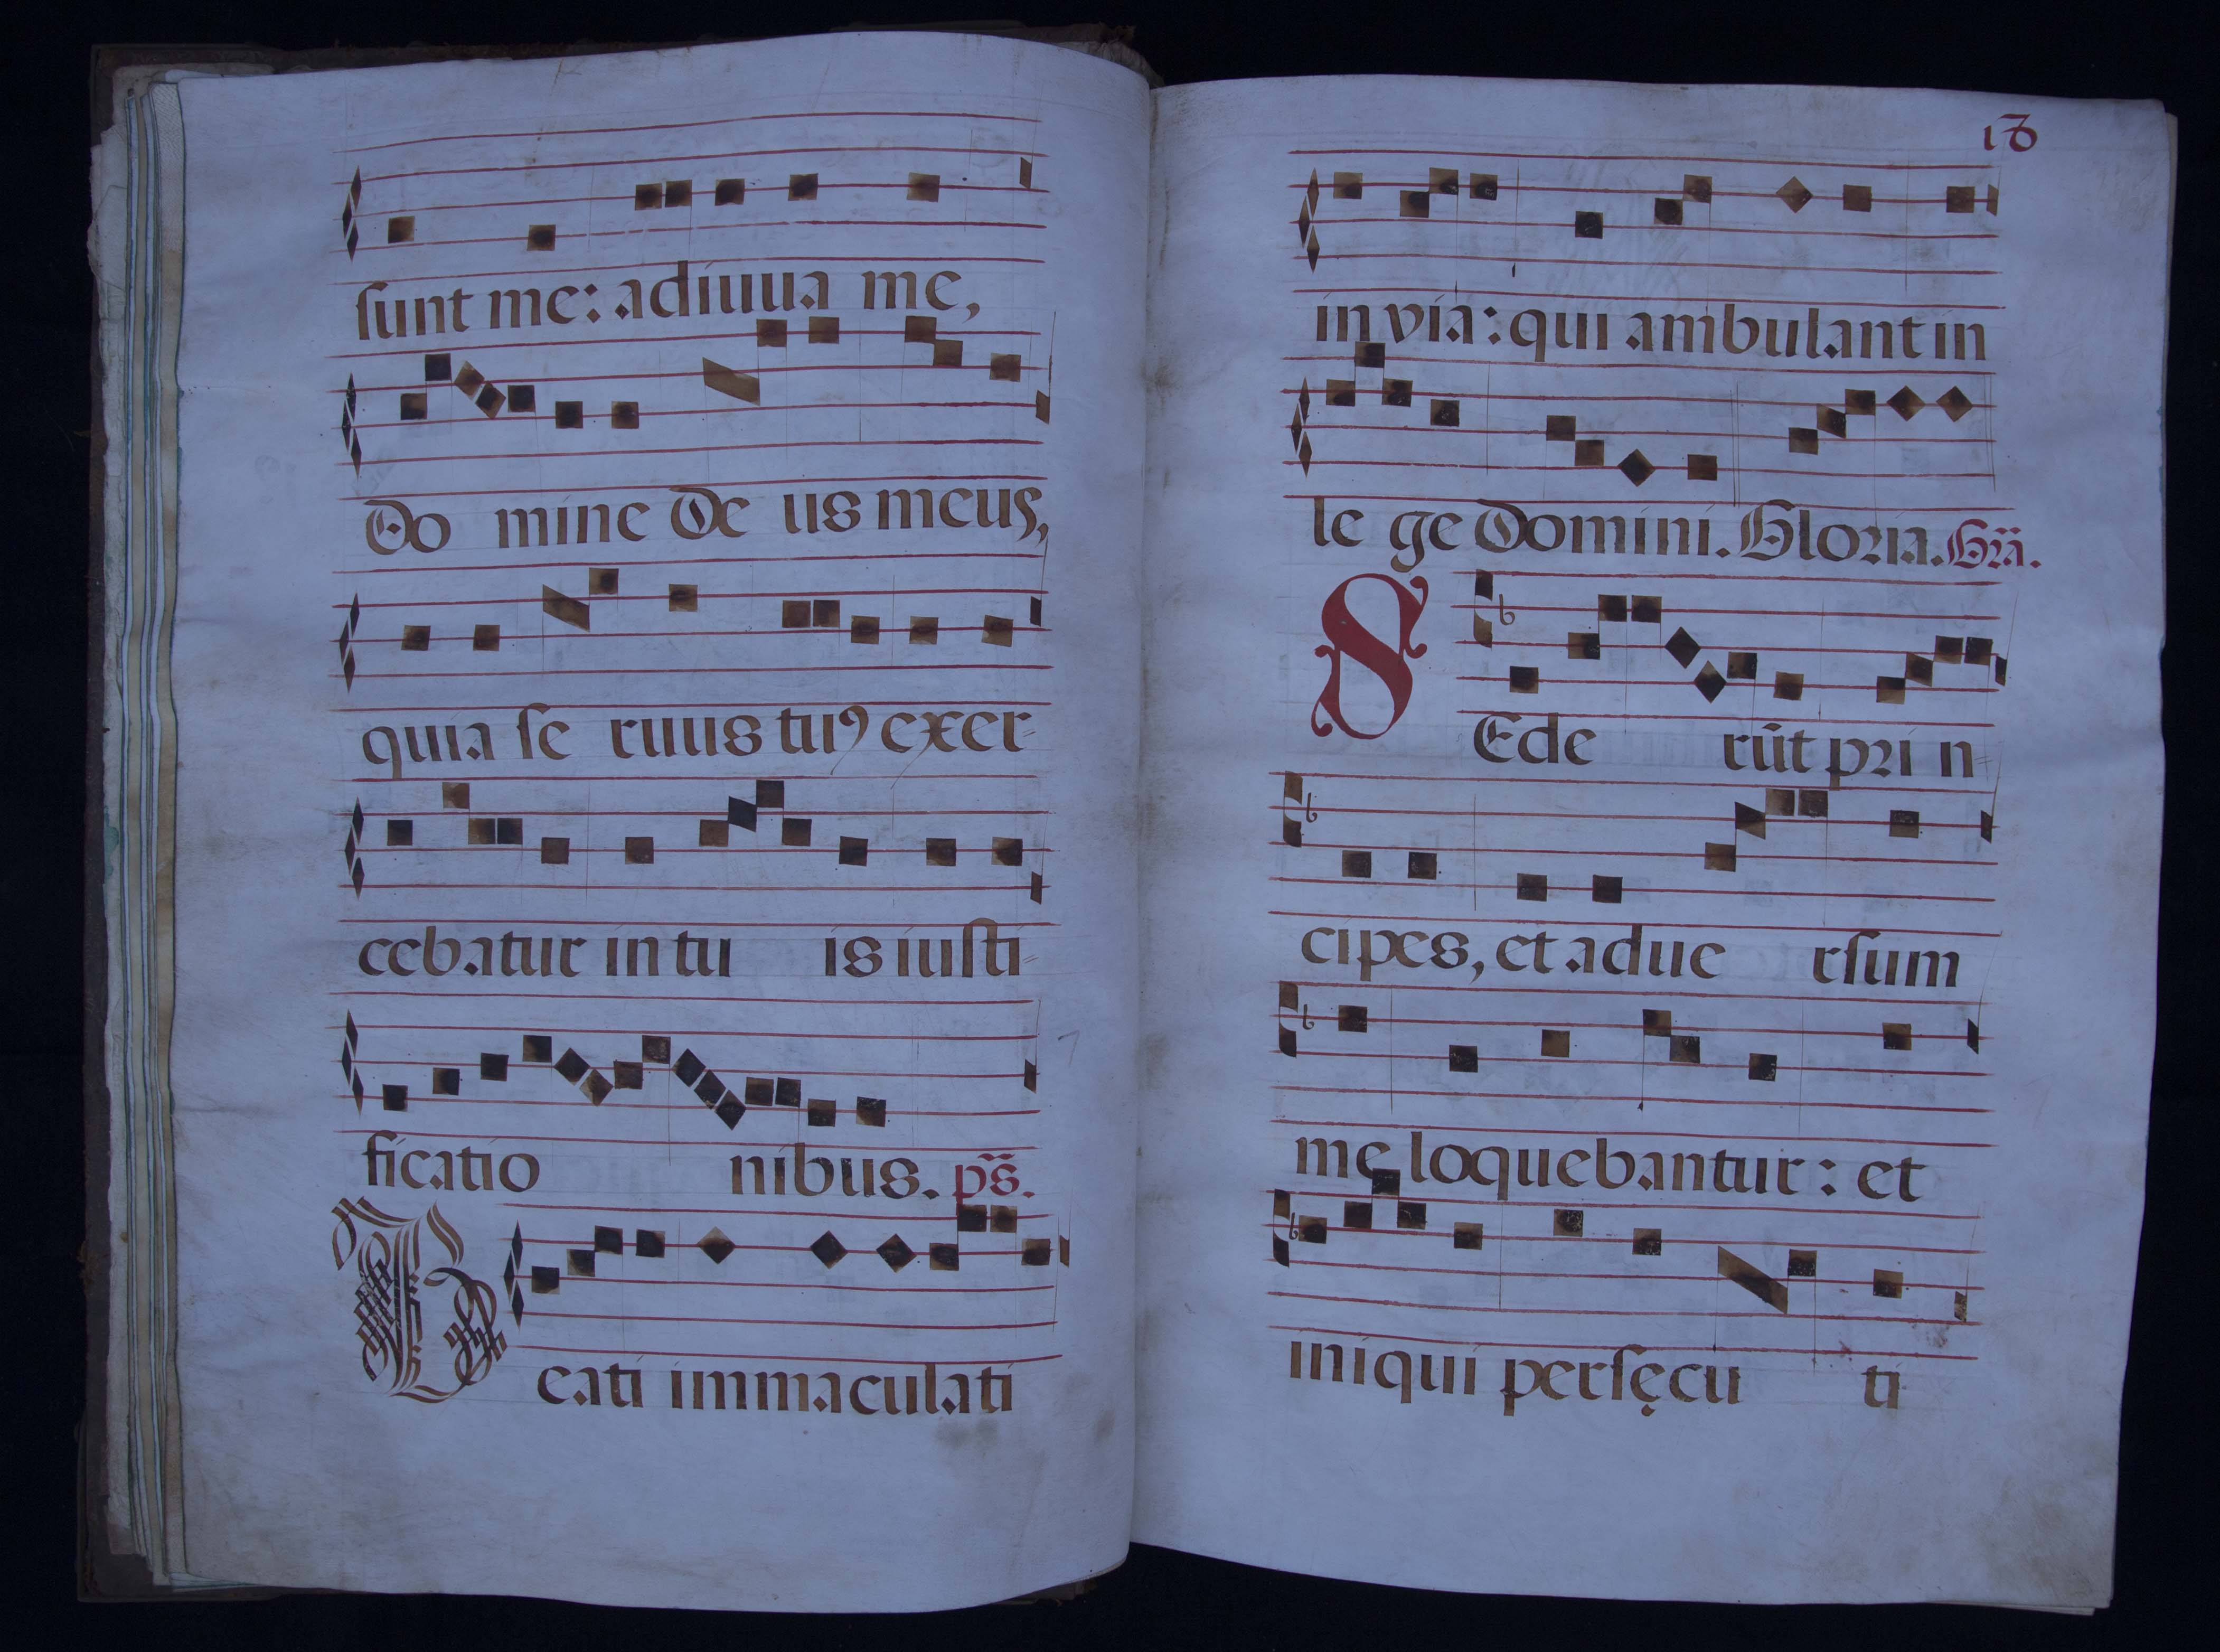 sunt me: adiuua me,
Do mine De us meus,
quia se ruus tuꝰ exer-
cebatur in tu is iusti-
ficatio nibus. ps̈.
Beati immaculati
18
in via: qui ambulant in
le ge Domini. Gloria. Gr̃a.
SEde rũt pri n-
cipes, et adue rsum
me loquebantur: et
iniqui persęcu ti